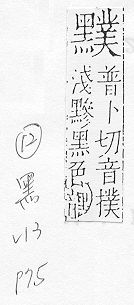 普卜切音撲
淺黲黑色
⑫
黑
v13
P75